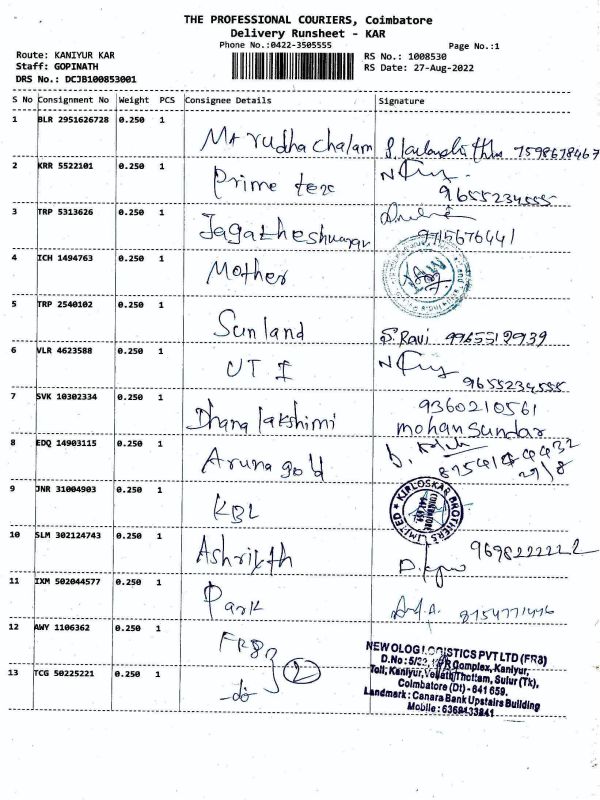 THE PROFESSIONAL COURIERS, Coimbatore
Delivery Runsheet - KAR
Phone No.:0422-3505555
Page No.:1
Route: KANIYUR KAR
RS No.: 1008530
Staff: GOPINATH
RS Date: 27-Aug-2022
DRS No.: DCJB100853001
S No Consignment No Weight PCS Consignee Details Signature
1 BLR 2951626728 0.250 1 Marudhachalam 7598678467
2 KRR 5522101 0.250 1 Prime tex 9655234555
3 TRP 5313626 0.250 1 Jagatheshwarar 9715676441
4 ICH 1494763 0.250 1 Mother
5 TRP 2540102 0.250 1 Sunland S. Ravi
6 VLR 4623588 0.250 1 UTI 9655234555
7 SVK 10302334 0.250 1 Dhanalakshimi 9360210561
mohan sundar
8 EDQ 14903115 0.250 1 Aruna gold
29/8
9 JNR 31004903 0.250 1 KBL
KIRLOSKAR BROTHERS LIMITED
COIMBATORE
10 SLM 302124743 0.250 1 9698222222
11 IXM 502044577 0.250 1 Park
12 AWY 1106362 0.250 1 FR8
13 TCG 50225221 0.250 1 -do 2
NEWOLOGISTICS PVT LTD (FR8)
D.No : 5/22, Complex, Kaniyur,
Toll, Kaniyur, Thottam, Sulur (Tk),
Coimbatore (Dt) - 641 659.
Landmark : Canara Bank Upstairs Building
Mobile : 6369133841